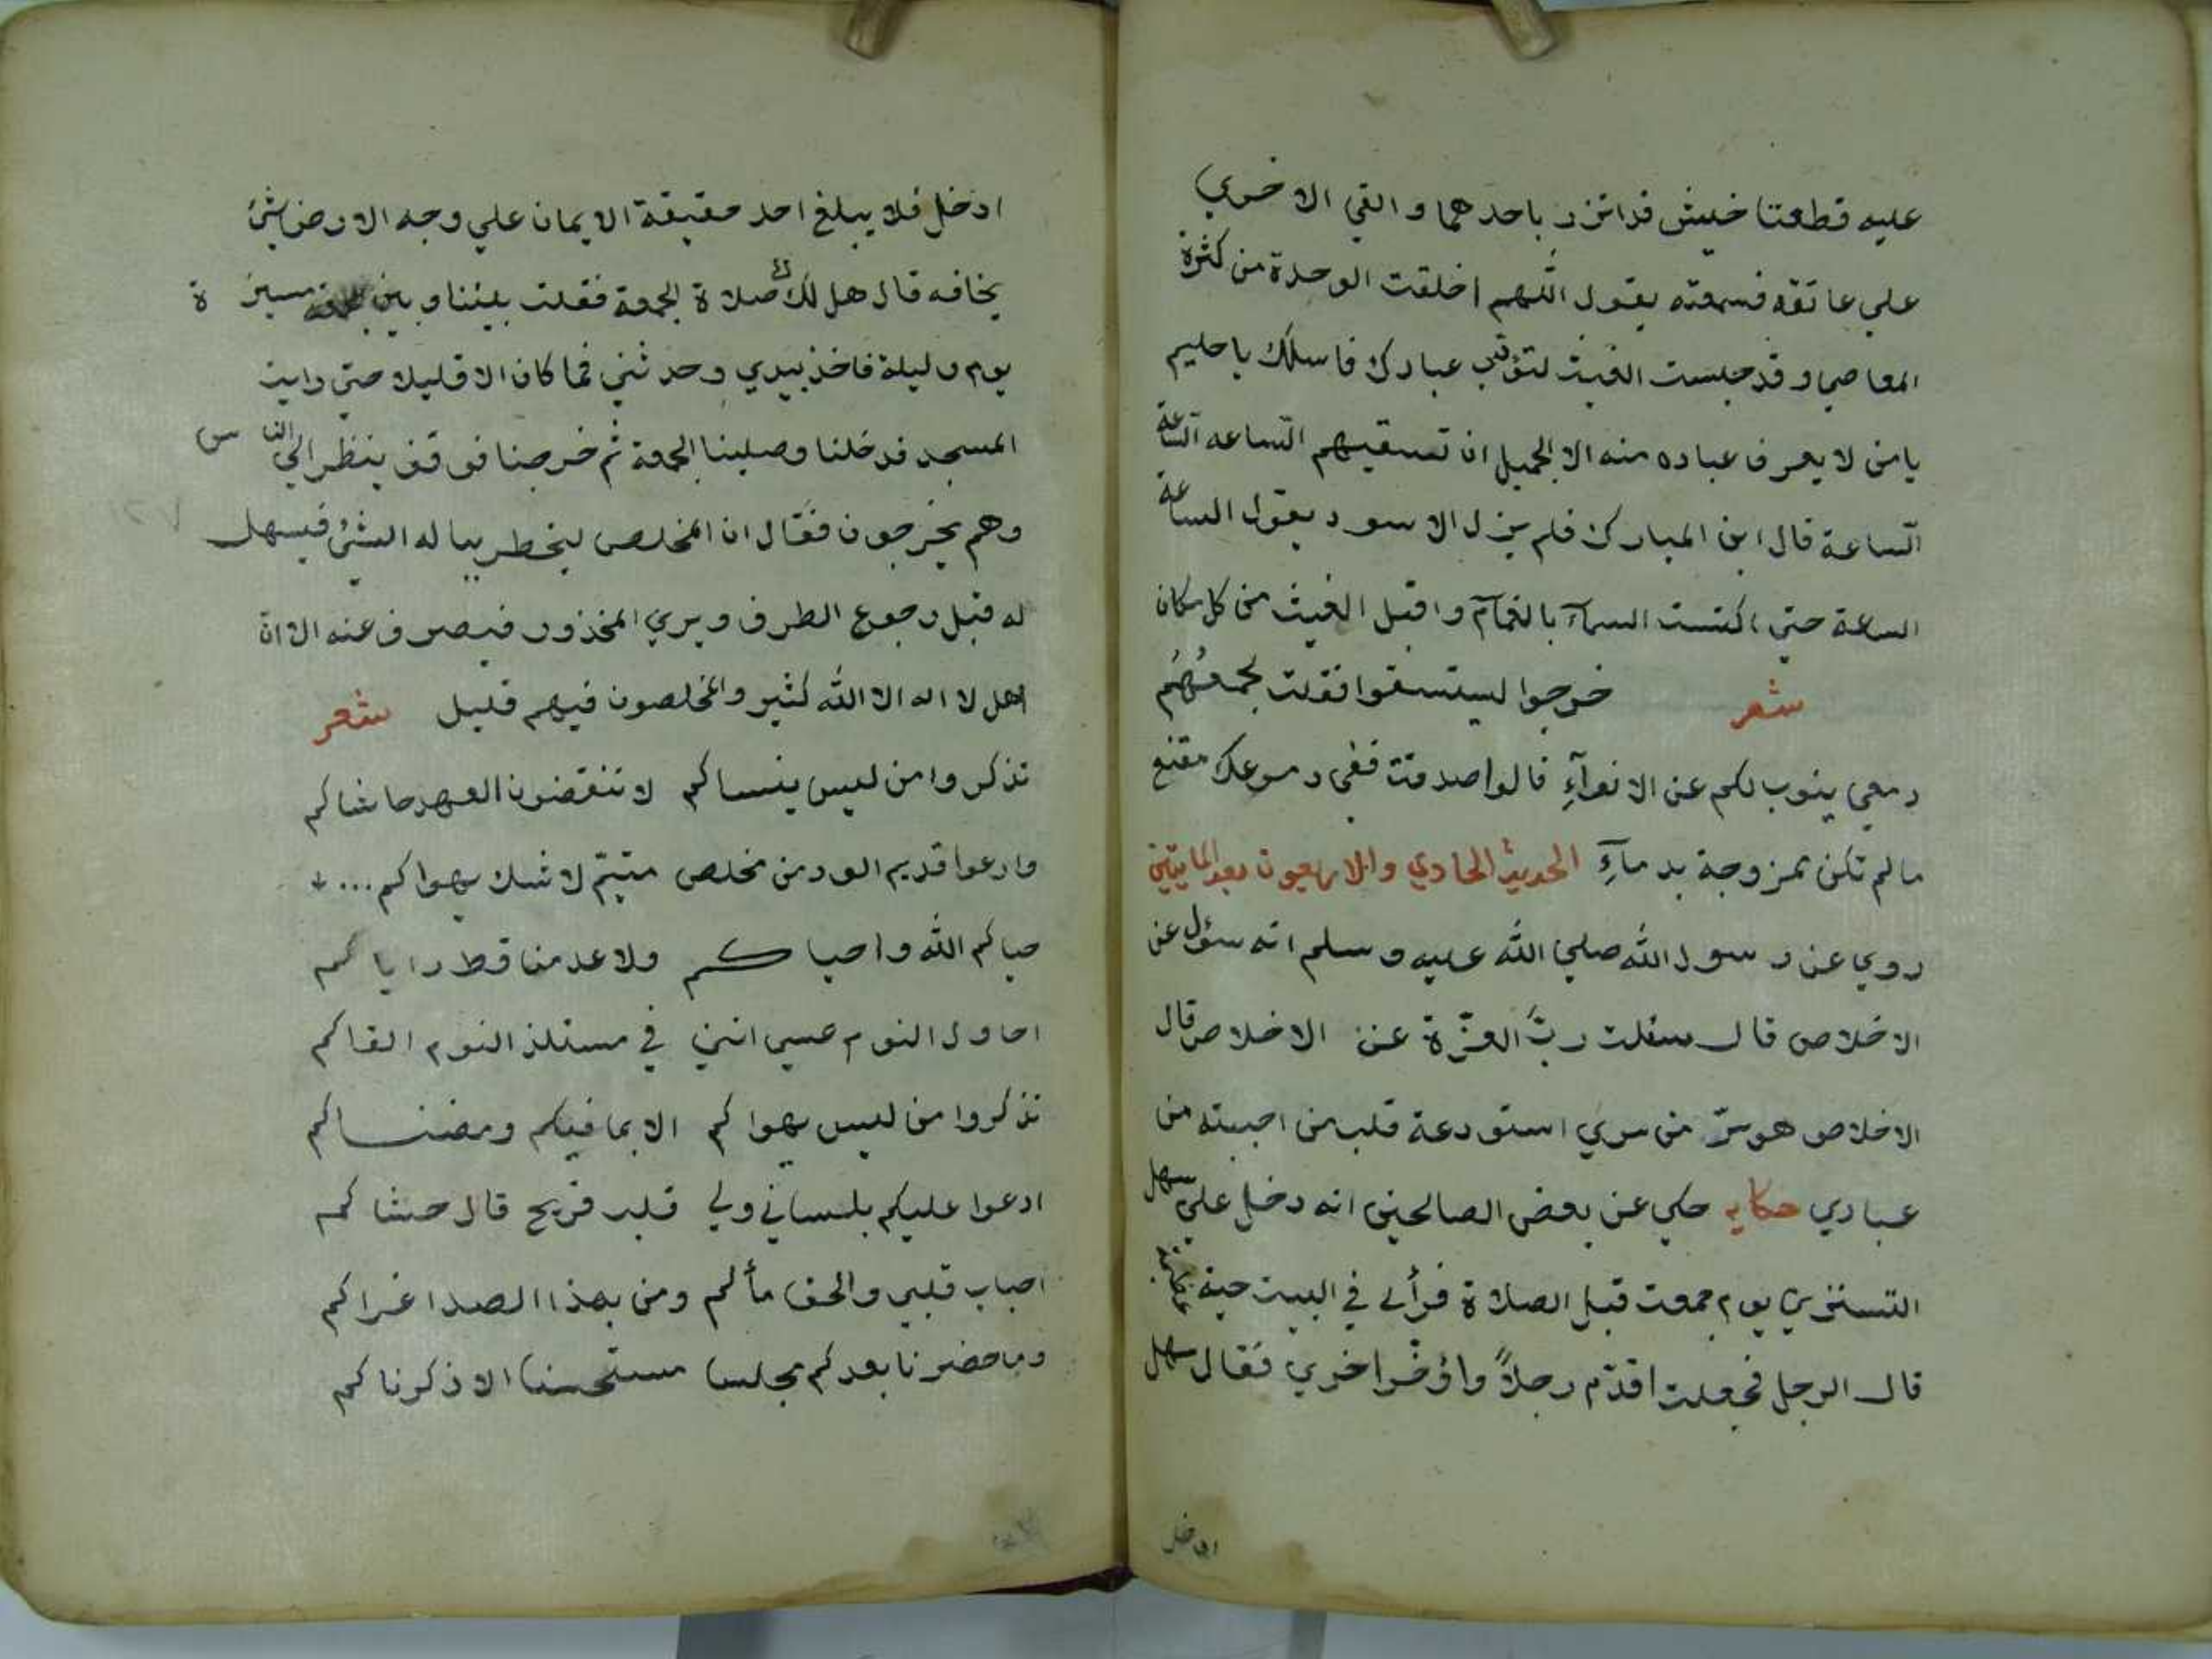 عليه قطعتا خيش قد اتزر باحدهما والقي الاخري
علي عاتقه فسمعته يقول اللهم اخلقت الوحدة من كثرة
المعاصي وقد حبست الغيث لتؤدب عبادك فاسلك ياحليم
يامن لا يعرف عباده منه الا الجميل ان تسقيهم الساعه الساعة
الساعة قال ابن المبارك فلم يزل الاسود يقول الساعة
الساعة حتي اكتست السمآء بالغمام واقبل الغيث من كل مكان
شعر خرجوا ليستسقوا فقلت لجمعهُمُ
دمعي ينوب لكم عن الانوآءِ قالوا صدقت ففي دموعك مقنع
مالم تكن ممزوجة بدمآءِ الحديث الحادي والاربعون بعد المايتين
روي عن رسول الله صلي الله عليه وسلم انه سؤل عن
الاخلاص قال سئلت ربّ العزّة عن الاخلاص قال
الاخلاص هو سرّ من سري استودعة قلب من احببته من
عبادي حكايه حكي عن بعض الصالحين انه دخل علي سهل
التستري يوم جمعت قبل الصلاة فرأى في البيت حية
قال الرجل فجعلت اقدّم رجلاً واؤخّر اخري فقال سهل
ادخل
ادخل فلا يبلغ احد حقيقة الايمان علي وجه الارض شئ
يخافه قال هل لك صلاة الجمعة فقلت بيننا وبين مسيرة
يوم وليلة فاخذ بيدي وحدثني فما كان الا قليلا حتي رايت
المسجد فدخلنا وصلينا الجمعة ثم خرجنا فوقف ينظر الي الناس
وهم يخرجون فقال ان المخلص ليخطر بباله الشئ فيسهل
له قبل رجوع الطرف ويري المحذور فيصرف عنه الا ان
اهل لا اله الا الله كثير والمخلصون فيهم قليل شعر
تذكروا من ليس ينساكم لا تنقضون العهد حاشاكم
وادعوا قديم الود من مخلص متيّم لا شك يهواكم
حياكم الله واحياكم ولا عدمنا قط راياكم
احاول النوم عسي انني في مستلذ النوم القاكم
تذكروا من ليس يهواكم الا بما فيكم ومضناكم
ادعوا عليكم بلساني ولي قلب قريح قال حشاكم
احباب قلبي والحق مألم ومن بهذا الصدا غراكم
وما حضرنا بعدكم مجلسا مستحسنا الا ذكرناكم